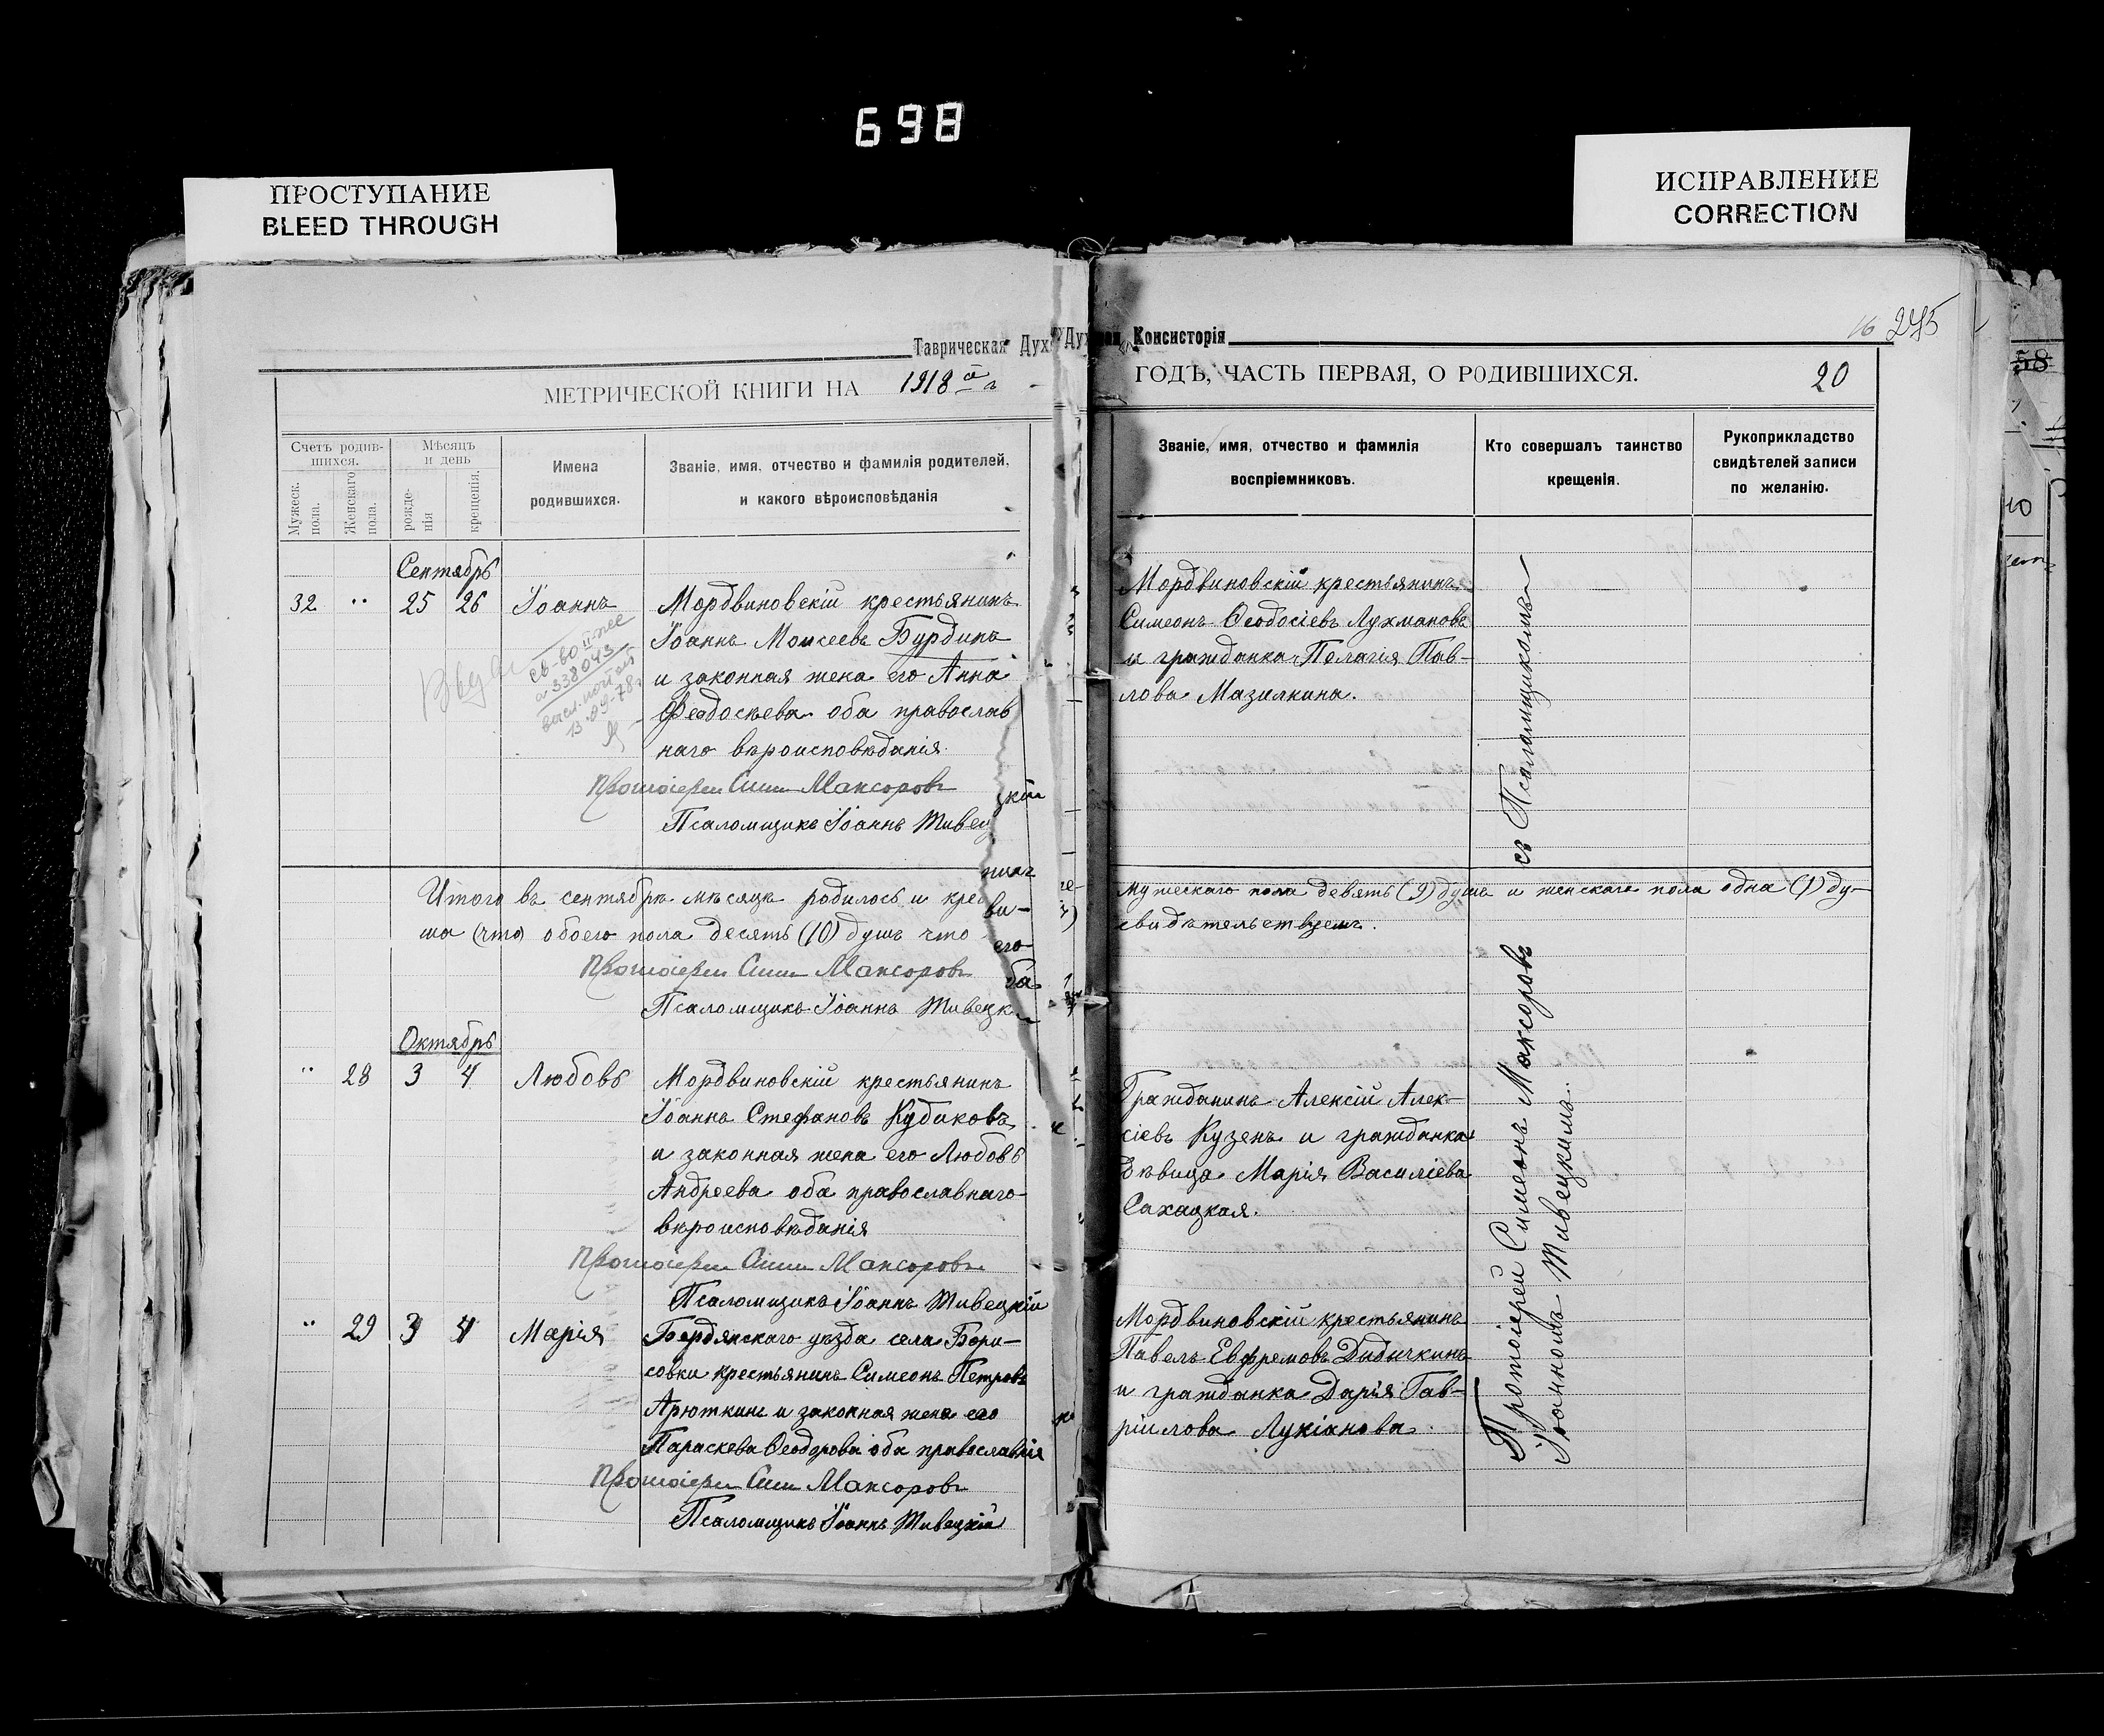 698
ПРОСТУПАНИЕ
BLEED THROUGH
ИСПРАВЛЕНИЕ
CORRECTION
Таврическая Дух
МЕТРИЧЕСКОЙ КНИГИ НА 1918 й г
Счетъ родив-
шихся.
Мужеск.
пола.
Женскаго
пола.
Мѣсяцъ
и день
рожде-
нія
крещенія.
Имена
родившихся.
Званіе, имя, отчество и фамилія родителей,
и какого вѣроисповѣданія
Сентябрь
32 " 25 26 Іоаннъ
Мордвиновскій крестьянинъ
Іоаннъ Моисеевъ Бурдинъ
и законная жена его Анна
Феодосьева оба православ
наго вѣроисповѣданія
св-во II-ЯС
№ 338043
13.09.78г
Протоіерей Сим Максоровъ
Псаломщикъ Іоаннъ Живец
Итого въ сентябрѣ мѣсяцѣ родилось и кре
ша (что) обоего пола десять (10) душъ что
Протоіерей Сим Максоровъ
Псаломщикъ Іоаннъ Живецк
цкій
ви-
его
ба
Октябрь
" 28 3 4 Любовь
Мордвиновскій крестьянинъ
Іоаннъ Стефановъ Кудаковъ
и законная жена его Любовь
Андреева оба православнаго
вѣроисповѣданія
Протоіерей Сим Максоровъ
Псаломщикъ Іоаннъ Живецкій
" 29 3 4 Марія
Бердянскаго уѣзда села Бори-
совки крестьянинъ Симеонъ Петровъ
Арюткинъ и законная жена его
Параскева Ѳеодорова оба православнія
Протоіерей Сим Максоровъ
Псаломщикъ Іоаннъ Живецкій
Консисторія
16 275
ГОДЪ, ЧАСТЬ ПЕРВАЯ, О РОДИВШИХСЯ.
20
Званіе, имя, отчество и фамилія
воспріемниковъ.
Кто совершалъ таинство
крещенія.
Рукоприкладство
свидѣтелей записи
по желанію.
Мордвиновскій крестьянинъ
Симеонъ Ѳеодосіевъ Лухмановъ
и гражданка Пелагія Пав-
лова Мазилкина.
мужескаго пола девять (9) душъ и женскаго пола одна (1) ду-
свидѣтельствуемъ.
Гражданинъ Алексій Алек-
сіевъ Кузенъ и гражданка
дѣвица Марія Василіева
Сахацкая.
Мордвиновскій крестьянинъ
Павелъ Евфремовъ Дидичкинъ
и гражданка Дарія Гав-
ріилова Лукіанова
Протоіерей Симеонъ Максоровъ съ Псаломщикомъ
Іоанномъ Живецкимъ.
58